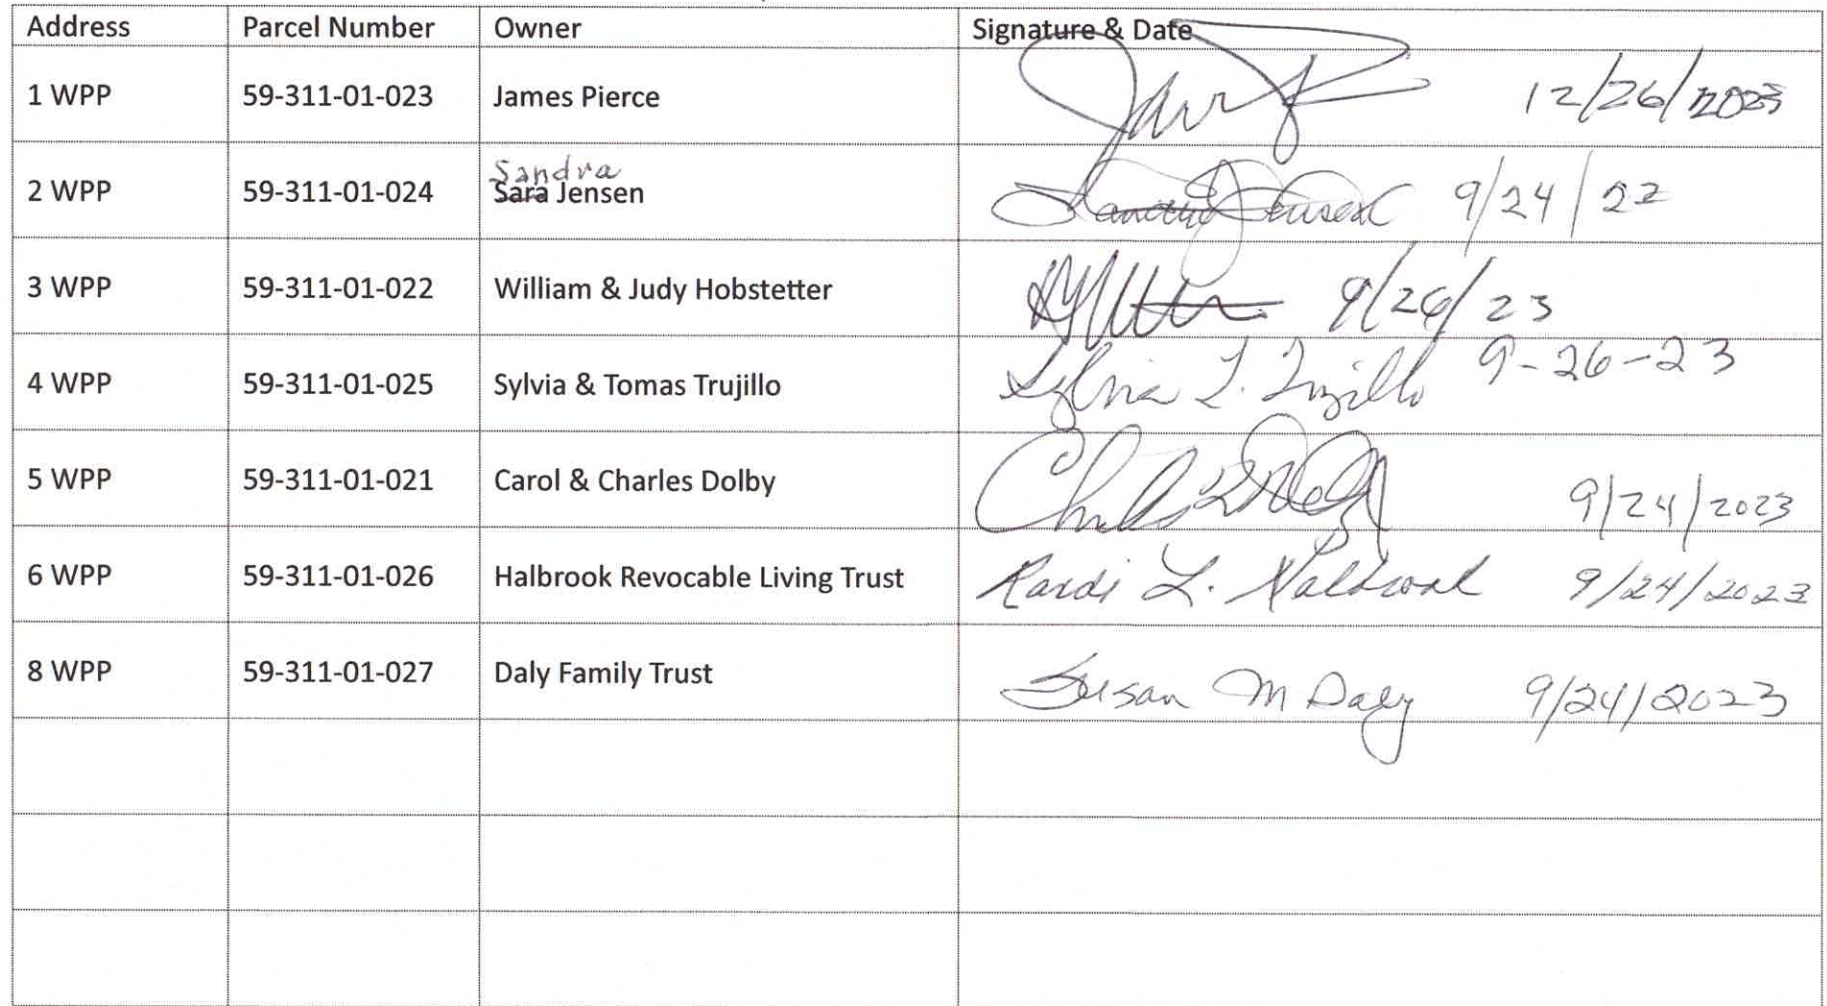 Address Parcel Number Owner Signature & Date
1 WPP 59-311-01-023 James Pierce 12/26/2023
Sandra
2 WPP 59-311-01-024 Sara Jensen Sandra Jensen 9/24/22
3 WPP 59-311-01-022 William & Judy Hobstetter 9/26/23
4 WPP 59-311-01-025 Sylvia & Tomas Trujillo Sylvia L. Trujillo 9-26-23
5 WPP 59-311-01-021 Carol & Charles Dolby 9/24/2023
6 WPP 59-311-01-026 Halbrook Revocable Living Trust Kardi L. Halbrook 9/24/2023
8 WPP 59-311-01-027 Daly Family Trust Susan M Daly 9/24/2023